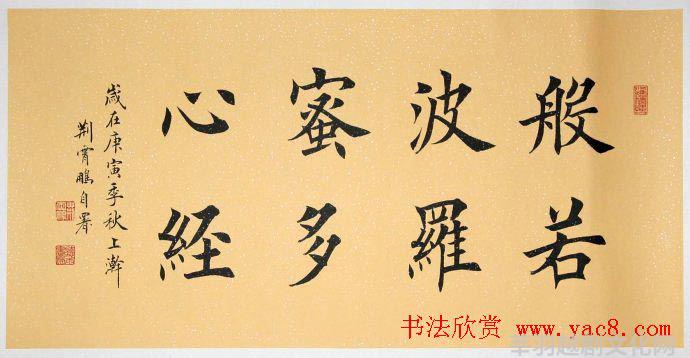 般若
波羅
蜜多
心経
歲在庚寅季秋上
荆霄鵬自署
书法欣赏 www.yac8.com